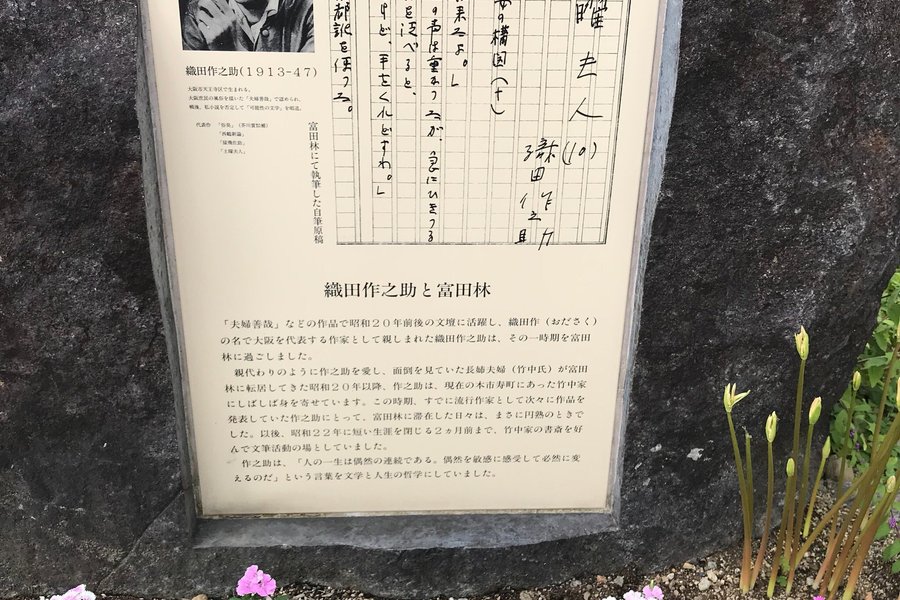 織田作之助(1913-47)
大阪市天王寺区で生まれる。
大阪庶民の風俗を描いた「夫婦善哉」で認められ、
戦後、私小説を否定して「可能性の文学」を唱道。
代表作 「俗臭」(芥川賞候補)
「西鶴新論」
「猿飛佐助」
「土曜夫人」
富田林にて執筆した自筆原稿
曜夫人(10)
織田作之助
女の構図(十)
来るよ。」
の声は重かつたが、急にひきつる
を述べると、
都訛を使つた。
織田作之助と富田林
「夫婦善哉」などの作品で昭和20年前後の文壇に活躍し、織田作(おださく)
の名で大阪を代表する作家として親しまれた織田作之助は、その一時期を富田
林に過ごしました。
親代わりのように作之助を愛し、面倒を見ていた長姉夫婦(竹中氏)が富田
林に転居してきた昭和20年以降、作之助は、現在の本市寿町にあった竹中家
にしばしば身を寄せています。この時期、すでに流行作家として次々に作品を
発表していた作之助にとって、富田林に滞在した日々は、まさに円熟のときで
した。以後、昭和22年に短い生涯を閉じる2ヵ月前まで、竹中家の書斎を好
んで文筆活動の場としていました。
作之助は、「人の一生は偶然の連続である。偶然を敏感に感受して必然に変
えるのだ」という言葉を文学と人生の哲学にしていました。